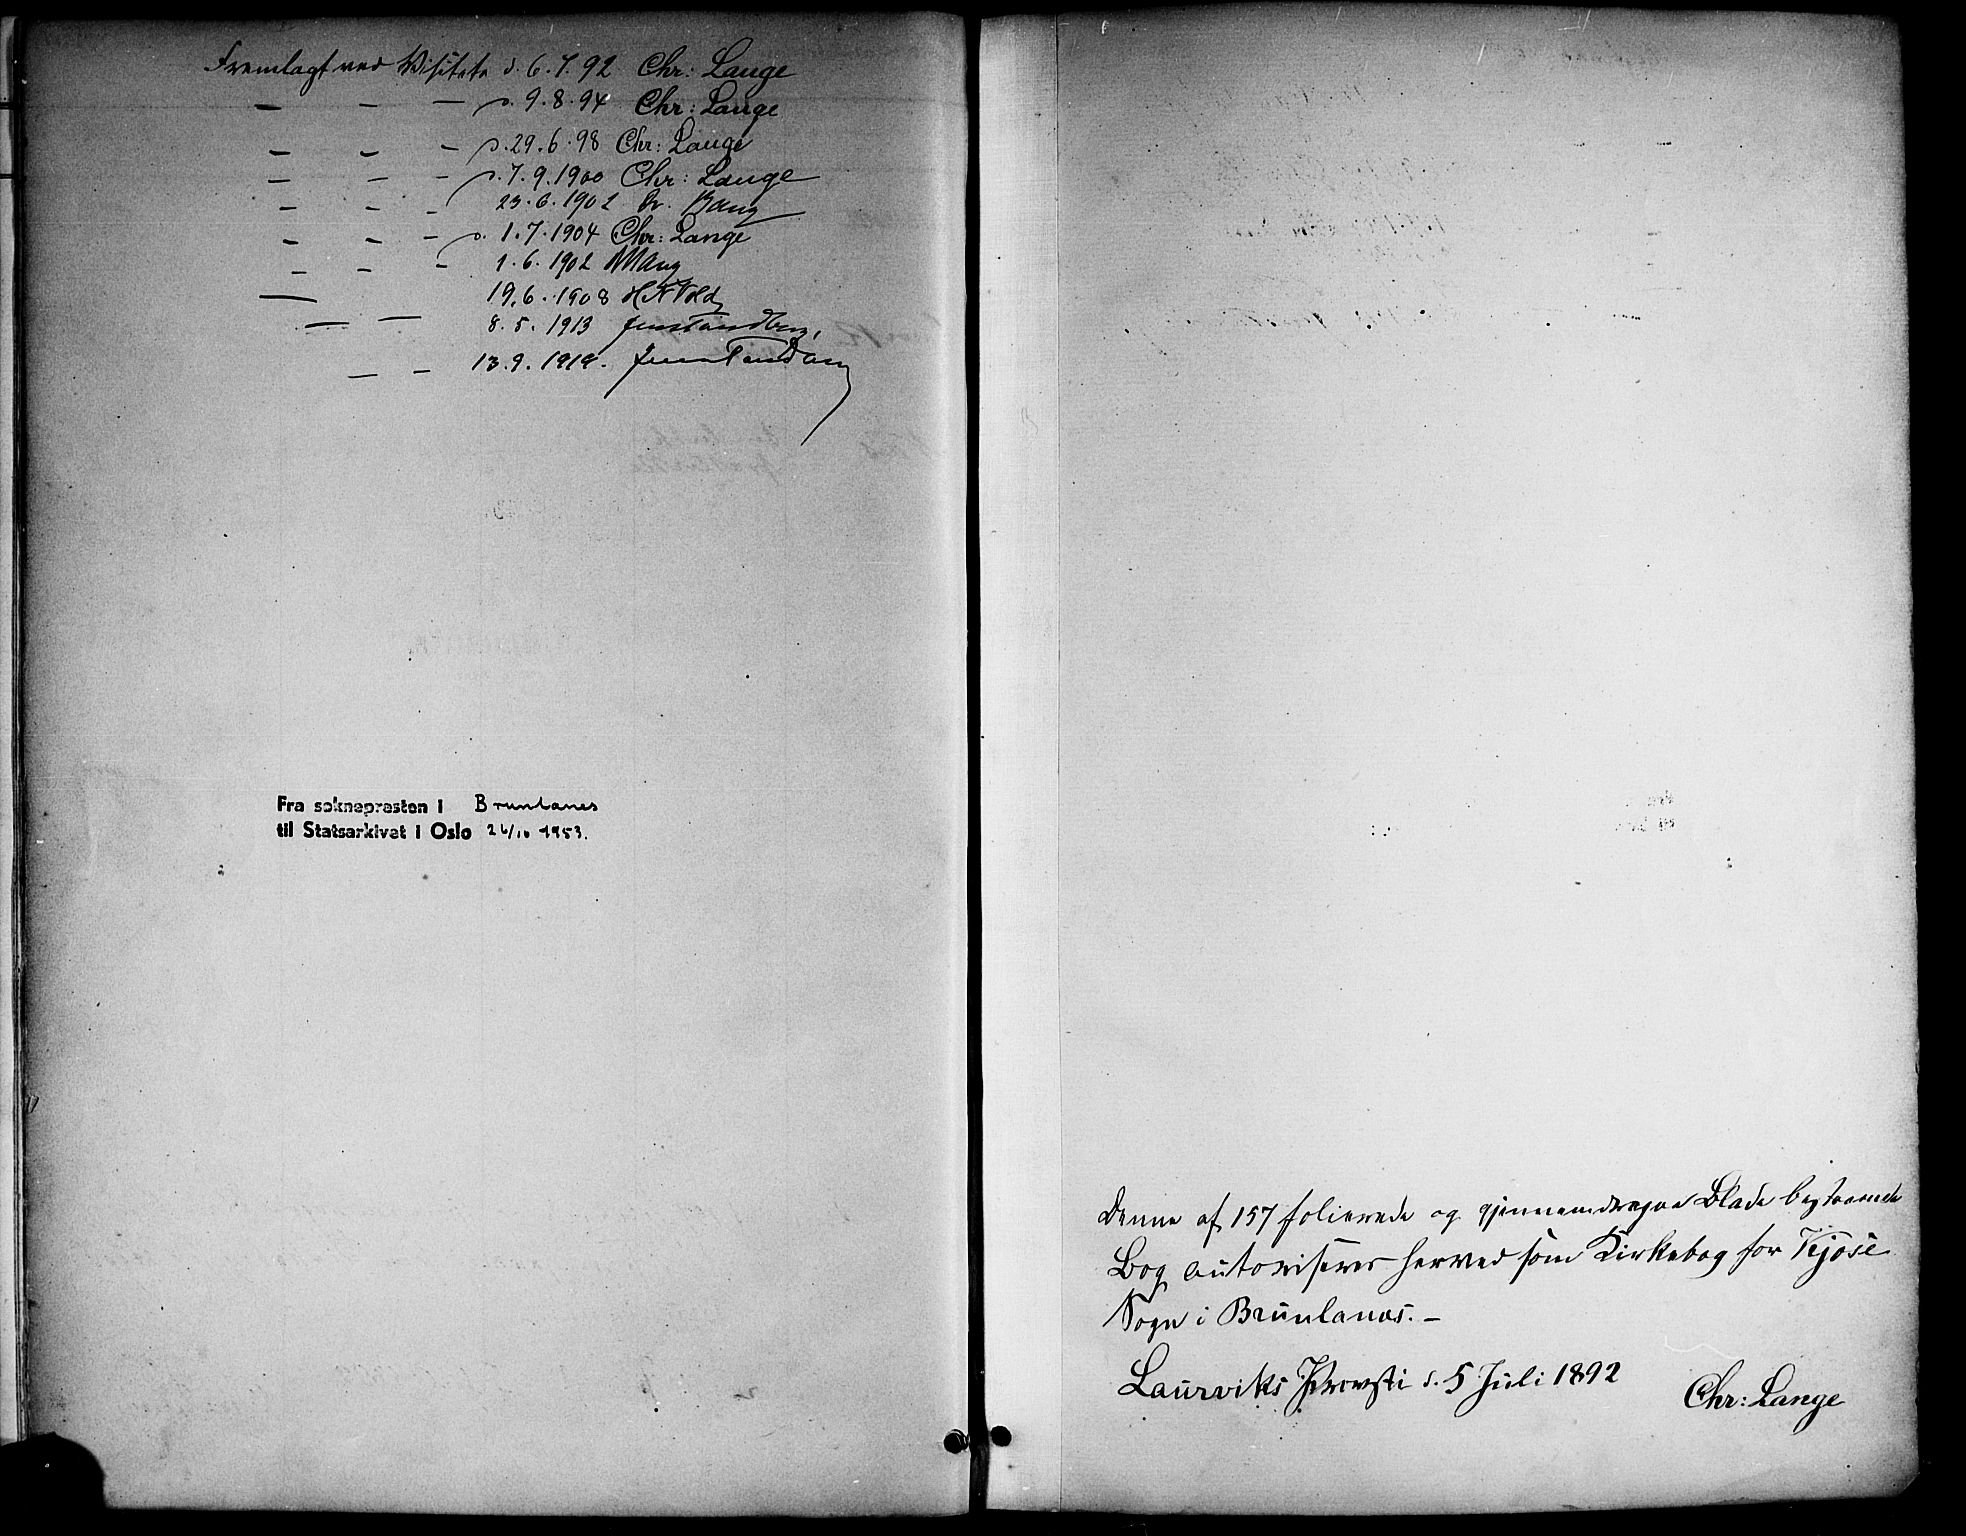 Fremlagt ved Visitats d. 6.7.92 Chr: Lange
— — — d. 9.8.94 Chr: Lange
— — — d. 29.6.98 Chr: Lange
— — — d. 7.9.1900 Chr: Lange
— — — 23.6.1902 Bang
— — — d. 1.7.1904 Chr: Lange
— — — 1.6.1902
— 19.6.1908
— — 8.5.1913 Jens Tandberg.
— — 13.9.1918. Jens Tandberg
Fra soknepresten i Brunlanes
til Statsarkivet i Oslo 26/10 1953.
Denne af 157 folierede og gjennemdragne Blade bestaaende
Bog autoriseres herved som Kirkebog for Kjose
Sogn i Brunlanæs. —
Laurviks Provsti d. 5 Juli 1892
Chr: Lange